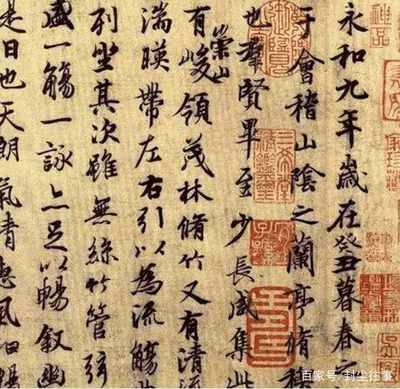 永和九年歲在癸丑暮春之
于會稽山陰之蘭亭脩稧
也羣賢畢至少長咸集此
有崇山峻領茂林脩竹又有清流
湍暎帶左右引以為流觴
列坐其次雖無絲竹管弦
盛一觴一詠亦足以暢敘幽
是日也天朗氣清惠風和暢
神品
百家号/封尘往事